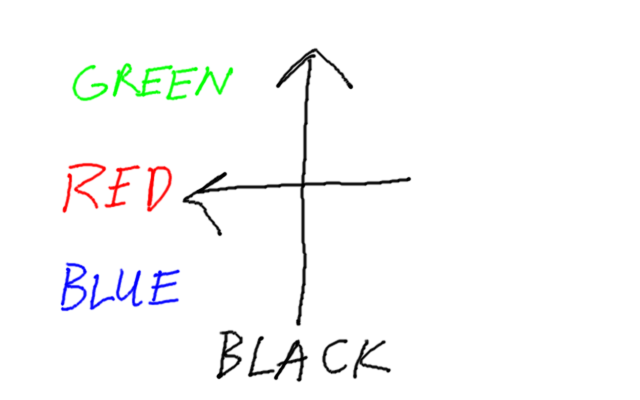 GREEN
RED
BLUE
BLACK